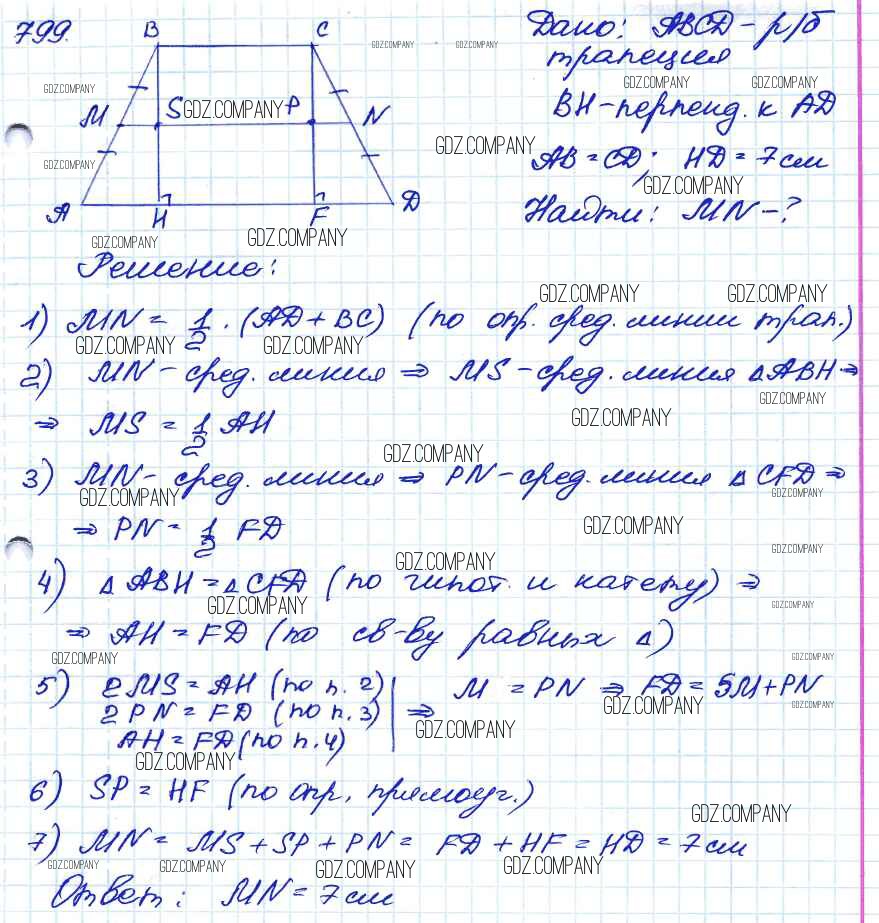 799.
B C
M S P N
A H F D
Дано: ABCD - р/б
трапеция
BH - перпенд. к AD
AB = CD; HD = 7 см
Найти: MN - ?
Решение:
1) MN = 1/2 · (AD + BC) (по опр. сред. линии трап.)
2) MN - сред. линия ⇒ MS - сред. линия △ABH ⇒
⇒ MS = 1/2 AH
3) MN - сред. линия ⇒ PN - сред. линия △CFD ⇒
⇒ PN = 1/2 FD
4) △ABH = △CFD (по гипот. и катету) ⇒
⇒ AH = FD (по св-ву равных △)
5) 2MS = AH (по п. 2)
2PN = FD (по п. 3)
AH = FD (по п. 4)
⇒ M = PN ⇒ FD = SM + PN
6) SP = HF (по опр. прямоуг.)
7) MN = MS + SP + PN = FD + HF = HD = 7 см
Ответ: MN = 7 см
GDZ.COMPANY